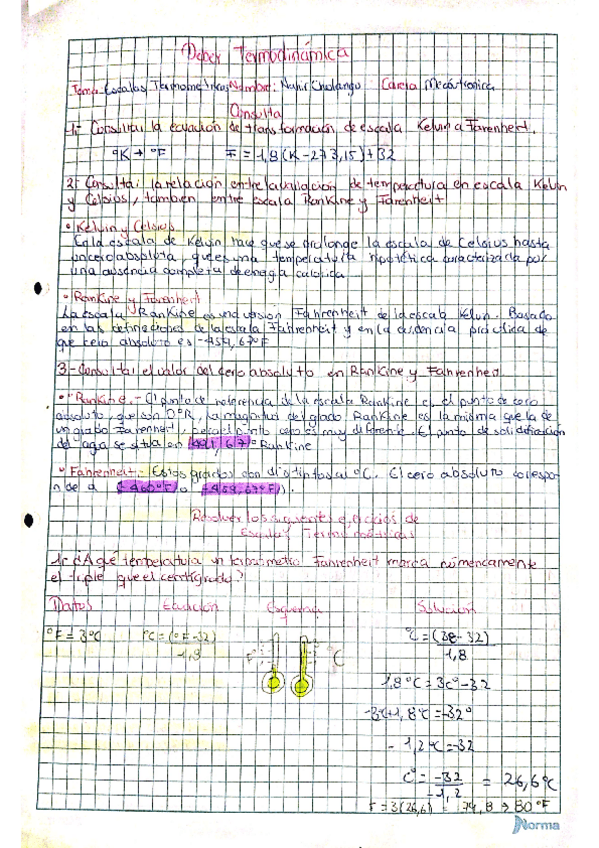 Deber Termodinámica
Tema: Escalas Termometricas Nombre: Nahir Cholango Carera Mecatronica
Consulta
1.- Consultar la ecuación de transformación de escala Kelvin a Farenhert.
°K → °F F = 1,8 (K - 273,15) + 32
2- Consultar la relación entre la valuación de temperatura en escala Kelvin
y Celsius, tambien entre escala RanKine y Farenheit
• Kelvin y Celsius
la escala de Kelvin hace que se prolonge la escala de Celsius hasta
un cero absoluto, que es una temperatura hipotética caracterizada por
una ausencia completa de energia calorica.
• RanKine y Farenheit
La escala RanKine es una version Fahrenheit de la escala Kelvin. Basado
en las definiciones de la escala Fahrenheit y en la evidencia práctica de
que cero absoluto es -459,67°F
3.- Consultar el valor del cero absoluto en RanKine y Fahrenheit
• RanKine.- El punto de referencia de la escala RanKine es el punto de cero
absoluto, que son 0°R, la magnitud del grado RanKine es la misma que la de
un grado Farenheit, pero el punto cero es muy diferente. El punto de solidificación
del agua se situa en 491,67° RanKine
• Fahrenheit: Estos grados son distintos al °C. El cero absoluto correspon
nde a (-460°F) o (-459,67°F).
Resolver los siguientes ejercicios de
Escalas Termometricas
1.- ¿A qué temperatura un termometro Fahrenheit marca númericamente
el triple que el centigrado?
Datos Ecuación Esquema Solución
°F = 3°C °C = (°F - 32) F °C °C = (3c - 32)
1,8 1,8
1,8°C = 3c° - 32
-3c + 1,8°C = -32°
- 1,2°C = -32
C° = -32 = 26,6°C
-1,2
F = 3(26,6) = 79,8 → 80°F
Norma